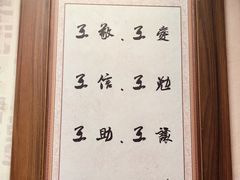 互敬、互愛
互信、互勉
互助、互諒